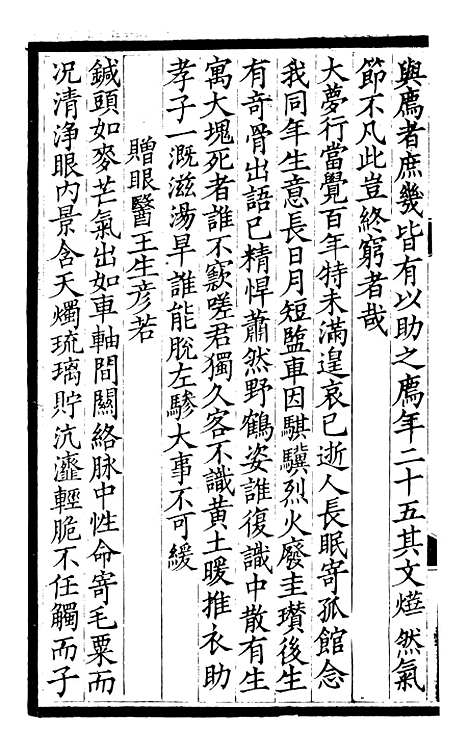 與廌者庶幾皆有以助之廌年二十五其文爗然氣
節不凡此豈終窮者哉
大夢行當覺百年特未滿遑哀已逝人長眠寄孤館念
我同年生意長日月短監車因騏驥烈火廢圭瓚後生
有奇骨出語已精悍蕭然野鶴姿誰復識中散有生
寓大塊死者誰不窾嗟君獨久客不識黃土暖推衣助
孝子一溉滋湯旱誰能脫左驂大事不可緩
贈眼醫王生彥若
鍼頭如麥芒氣出如車軸間關絡脉中性命寄毛粟而
況清淨眼內景含天燭琉璃貯沆瀣輕脆不任觸而子